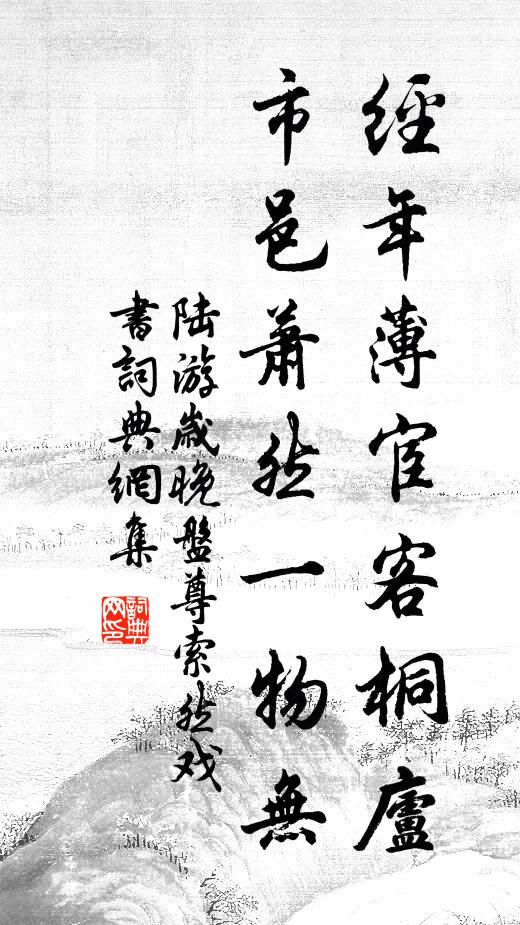 經年薄宦客桐廬
市邑蕭然一物無
陸游歲晚盤尊索然戏
書詞典網集
詞典
网印